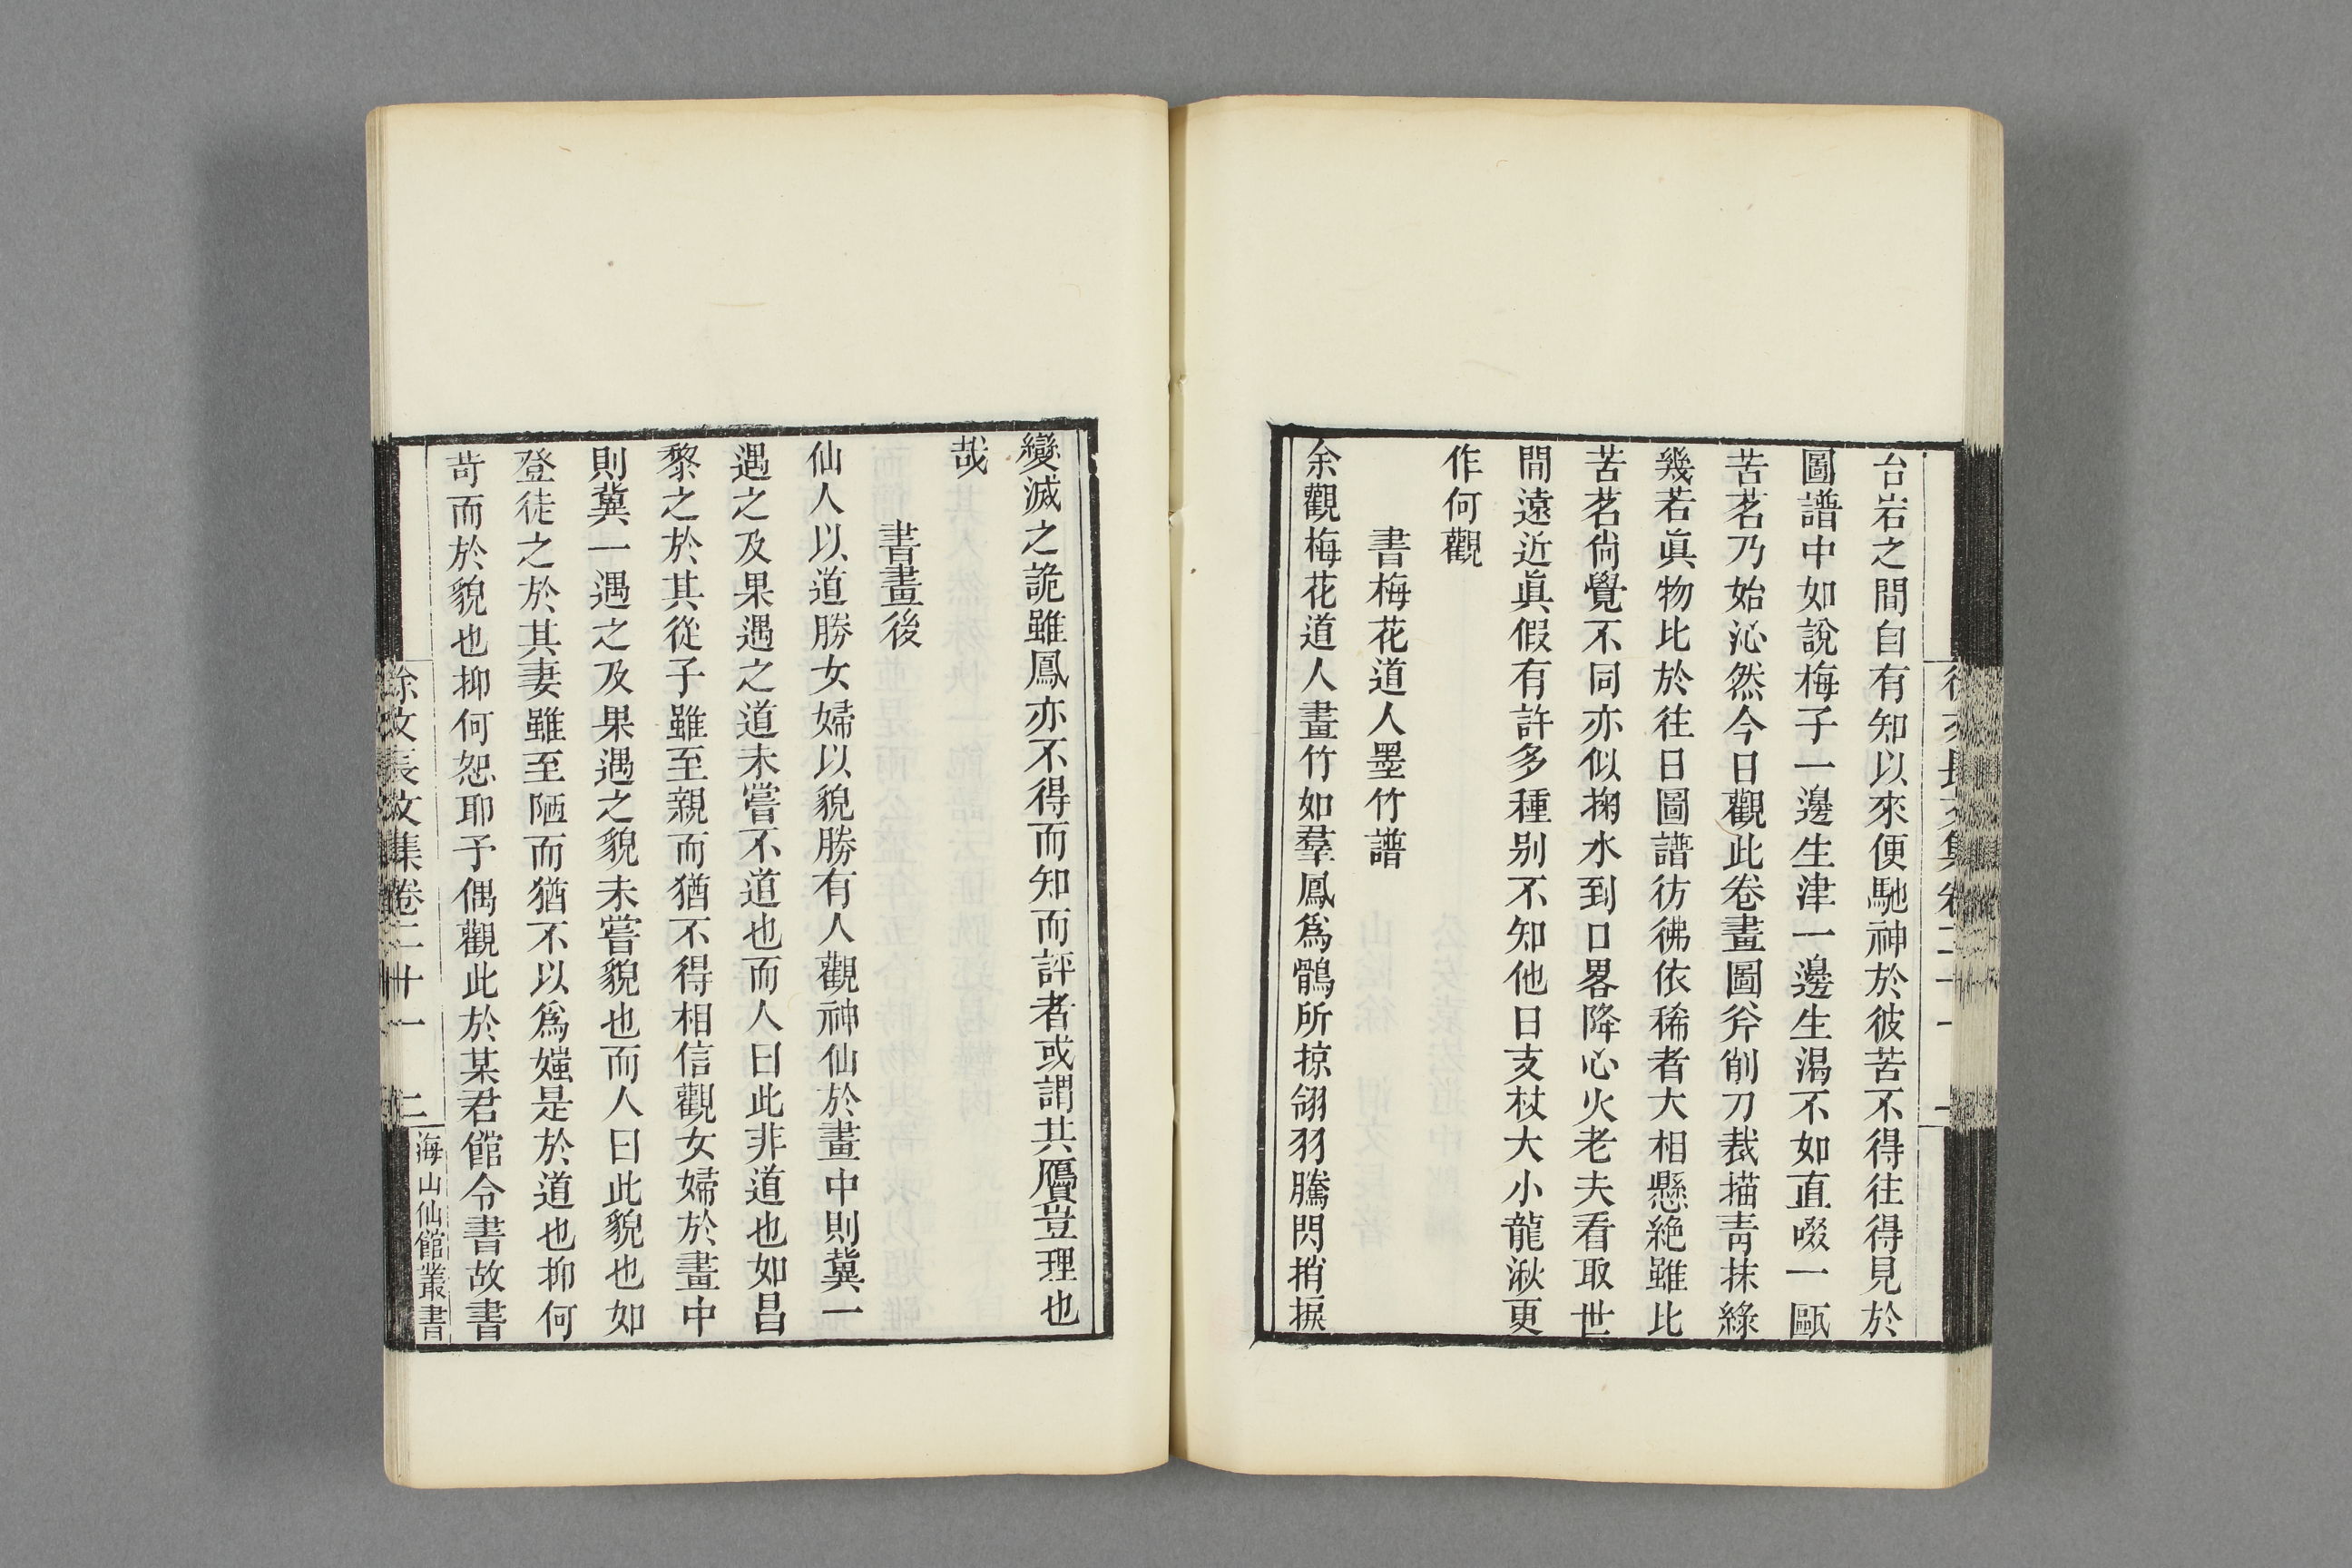 台岩之間自有知以來便馳神於彼苦不得往得見於
圖譜中如說梅子一邊生津一邊生渴不如直啜一甌
苦茗乃始沁然今日觀此卷畫圖斧削刀裁描靑抹綠
幾若眞物比於往日圖譜彷彿依稀者大相懸絶雖比
苦茗尙覺不同亦似掬水到口畧降心火老夫看取世
間遠近眞假有許多種别不知他日支杖大小龍湫更
作何觀
書梅花道人墨竹譜
余觀梅花道人畫竹如羣鳳爲鶻所掠翎羽騰閃捎捩
變滅之詭雖鳳亦不得而知而評者或謂其贋豈理也
哉
書畫後
仙人以道勝女婦以貌勝有人觀神仙於畫中則冀一
遇之及果遇之道未嘗不道也而人曰此非道也如昌
黎之於其從子雖至親而猶不得相信觀女婦於畫中
則冀一遇之及果遇之貌未嘗貌也而人曰此貌也如
登徒之於其妻雖至陋而猶不以爲媸是於道也抑何
苛而於貌也抑何恕耶予偶觀此於某君館令書故書
徐文長文集卷二十一 二
海山仙館叢書